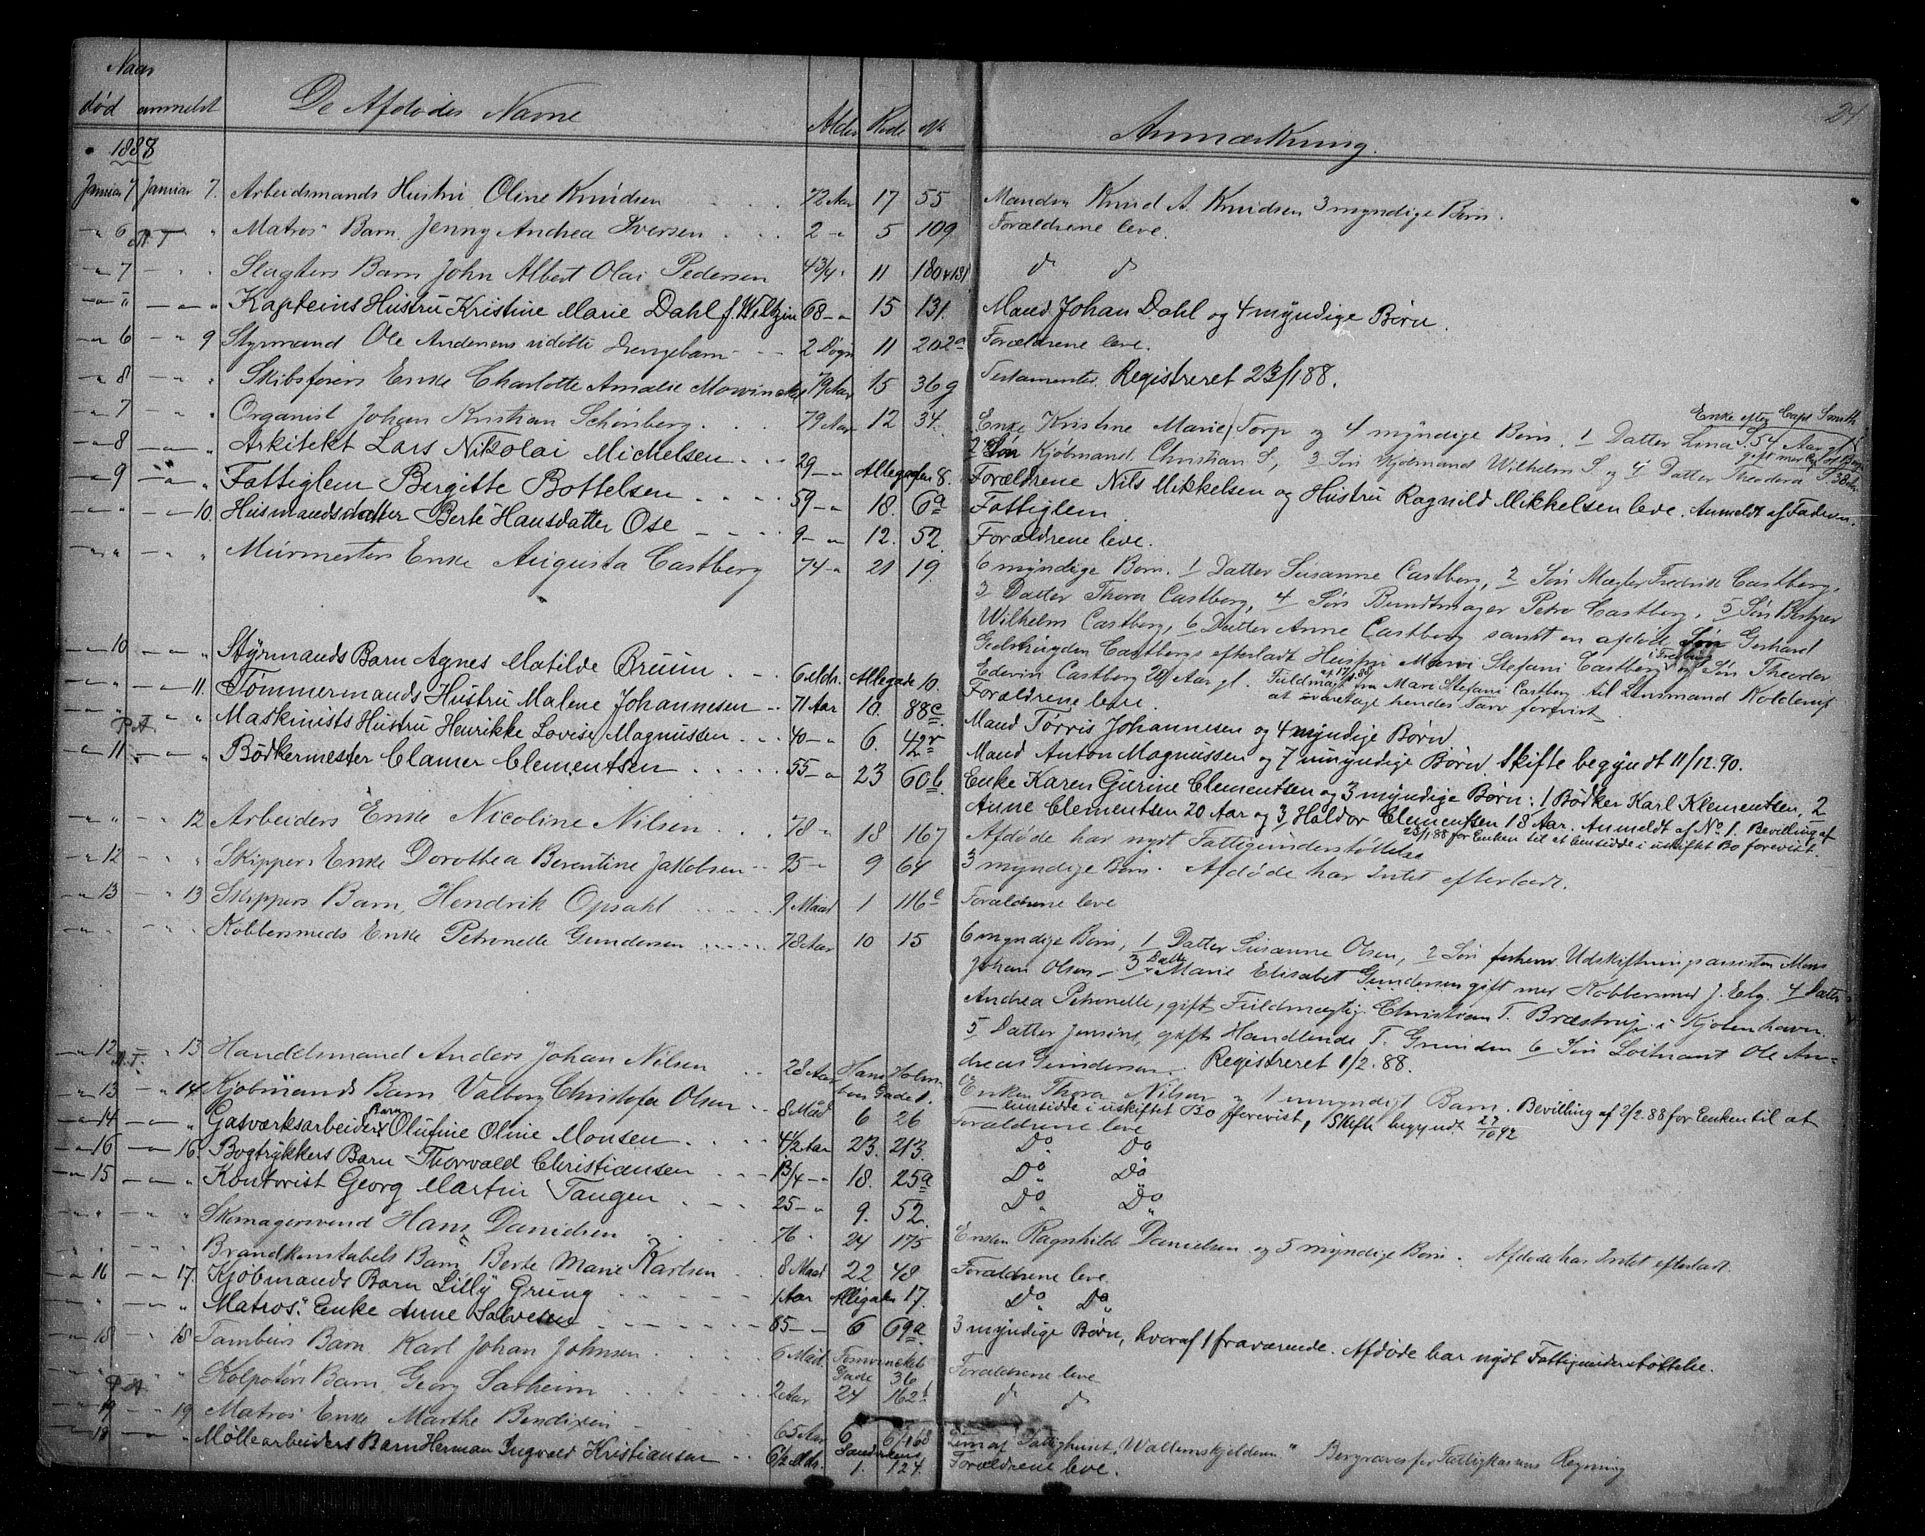 Naar
død anmeldt De Afdødes Navne Alder Rode No Anmærkning. 24
1888
Januar 7 Januar 7. Arbeidsmands Hustru Oline Knudsen 72 Aar 17 55 Manden Knud A. Knudsen 3 myndige Børn.
" 6 " " Matros' Barn Jenny Andrea Iversen 2 " 5 109 Forældrene leve.
" 7 " " Slagters Barn John Albert Olai Pedersen 4 3/4 " 11 180 & 181 d° d°
" " " " Kapteins Hustru Kristine Marie Dahl f. Wiltzin 68 " 15 131. Mand Johan Dahl og 4 myndige Børn.
" 6 " 9 Styrmand Ole Andersens udøbte Drengebarn 2 Døgn 11 202a Forældrene leve.
" 8 " " Skibsførers Enke Charlotte Amalie Mowinckel 79 Aar 15 36g Testamenter. Registreret 23/1 88.
" 7 " " Organist Johan Kristian Schönberg 79 Aar 12 34. Enke Kristine Marie f. Torp og 4 myndige Børn. 1 Datter Lina S. 54 Aar gl. Enke efter Capt Smith
" 8 " " Arkitekt Lars Nikolai Michelsen 29 " Allegaden 8. 2 Søn Kjøbmand Christian S, 3 Søn Kjøbmand Wilhelm S. og 4 Datter Theodora
" 9 " " Fattiglem Bergitte Bottelsen 59 " 18. 6a Forældrene Nils Mikkelsen og Hustru Ragnild Mikkelsen leve. Anmeldt af Faderen.
" " " 10. Husmandsdatter Berte Hansdatter Ose 9 " 12. 52. Fattiglem.
" " " " Murmesters Enke Augusta Castberg 74 " 21 19. Forældrene leve.
6 myndige Børn. 1 Datter Susanne Castberg, 2 Søn Mægler Fredrik Castberg,
3 Datter Thora Castberg, 4 Søn Bundtmager Petro Castberg, 5 Søn Bestyrer
Wilhelm Castberg, 6 Datter Anne Castberg samt en afdøde Søn Gerhard
Castbergs efterladt Hustru Marie Stefani Castberg og Søn Theodor
Edevin Castberg 20 Aar gl. Fuldmagt fra Mari Stefani Castberg til Lensmand Kolderup
at ivaretage hendes Tarv forevist.
" 10 " " Styrmands Barn Agnes Matilde Bruun 6 Mdr. Allegade 10. Forældrene leve.
" " " 11. Tømmermands Hustru Malene Johannesen 71 Aar 10. 88c Mand Tørris Johannesen og 4 myndige Børn
" " " " Maskinists Hustru Henrikke Lovise Magnussen 40 " 6. 42r Mand Anton Magnussen og 7 umyndige Børn. Skifte begyndt 11/12.90.
" 11 " " Bødkermester Clamer Clementsen 55 " 23 60b. Enke Karen Gurine Clementsen og 3 myndige Børn: 1 Bødker Karl Klementsen, 2
Anne Clementsen 20 Aar og 3 Haldor Clementsen 18 Aar. Anmeldt af No 1. Bevilling af
23/1 88 for Enken til at hensidde i uskiftet Bo forevist.
" " " 12 Arbeiders Enke Nicoline Nilsen 78 " 18 167 Afdøde har nydt Fattigunderstøttelse
" 12 " " Skippers Enke Dorothea Berentine Jakobsen 35 " 9 64 3 myndige Børn. Afdøde har Intet efterladt.
" 13 " 13 Skippers Barn, Hendrik Opsahl 9 Maad 1 116c Forældrene leve
" " " " Kobbersmeds Enke Petronelle Gundersen 78 Aar 10 15 6 myndige Børn, 1 Datter Susanne Olsen, 2 Søn forhenv. Udskiftningsassistent Mons
Johan Olsen – 3 Datter Marie Elisabet Gundersen gift med Kobbersmed J. Elg. 4 Datter
Andrea Petronelle, gift Fuldmægtig Christian T. Bræstrup i Kjøbenhavn.
5 Datter Jensine, gift Handlende T. Grunden 6 Søn Løitnant Ole An-
dreas Gundersen. Registreret 1/2.88.
" 12 " 13 Handelsmand Anders Johan Nilsen 28 Aar Hans Holm- boes Gade 1. Enken Thora Nilsen og 1 umyndigt Barn. Bevilling af 2/2.88 for Enken til at
hensidde i uskiftet Bo forevist, Skifte begyndt 27/10 92
" 13 " 14 Kjøbmands Barn Valborg Christofa Olsen 8 Maad 6 26 Forældrene leve
" 14 " " Gasværksarbeiders Barn Olufine Oline Monsen 4 1/2 Aar 23. 213. D° D°
" 16 " 16 Bogtrykkers Barn Thorvald Christiansen 1 3/4 " 18. 25a D° D°
" 15 " " Kontorist Georg Martin Tangen 25 " 9. 52. D° D°
" " " " Skomagersvend Hans Danielsen 76 " 24 175 Enken Ragnhilde Danielsen og 5 myndige Børn. Afdøde har Intet efterladt.
" " " " Brandkonstabels Barn Berte Marie Karlsen 8 Maad 22 48 Forældrene leve.
" 16 " 17. Kjøbmands Barn Lilly Grung 1 Aar Allegaden 17. D° D°
" " " " Matros' Enke Anne Salvesen 85 " 6 69a 3 myndige Børn, hvoraf 1 fraværende. Afdøde har nydt Fattigunderstøttelse.
" 18 " 18 Tamburs Barn Karl Johan Johnsen 6 Maad. Gade 36 Forældrene leve
" " " " Kolportørs Barn, Georg Sarheim 2 Aar 24 162 d° d°
" 19 " 19 Matros Enke Marthe Bendixen 65 Aar 6 Lem af Fattighuset "Wallemskjelderen" Begraves for Fattigkassens Regning
" 18 " " Møllearbeiders Barn Herman Ingvald Kristiansen 6 1/2 Mdr. 1. 124. Forældrene leve.